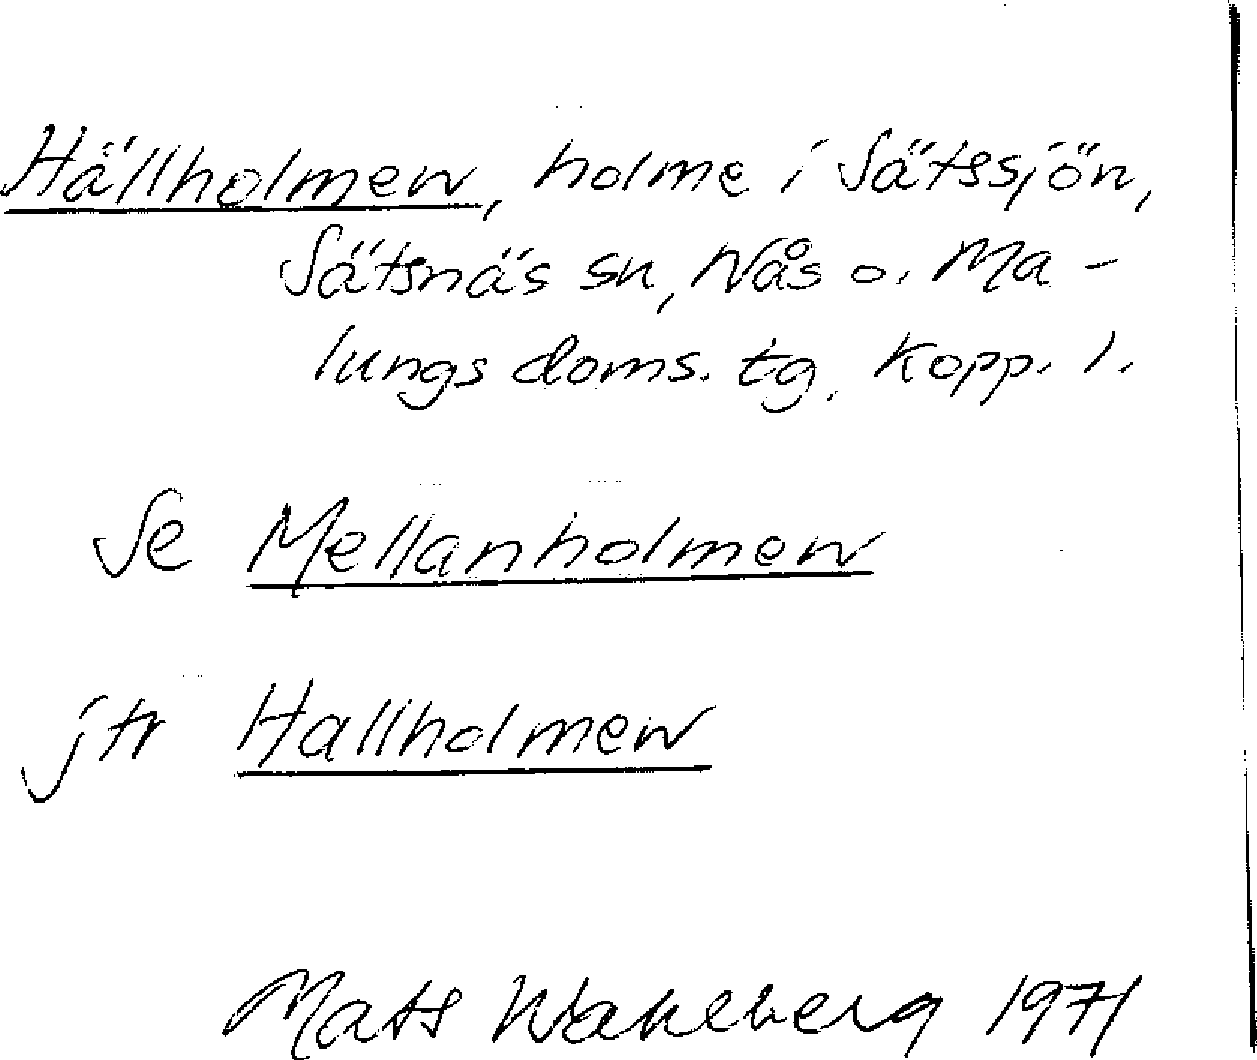 Hällholmen, holme i Sätssjön,
Sätsnäs sn, Nås o. Ma-
lungs doms. tg, Kopp. l.
Se Mellanholmen
jfr Hallholmen
Mats Wahlberg 1971